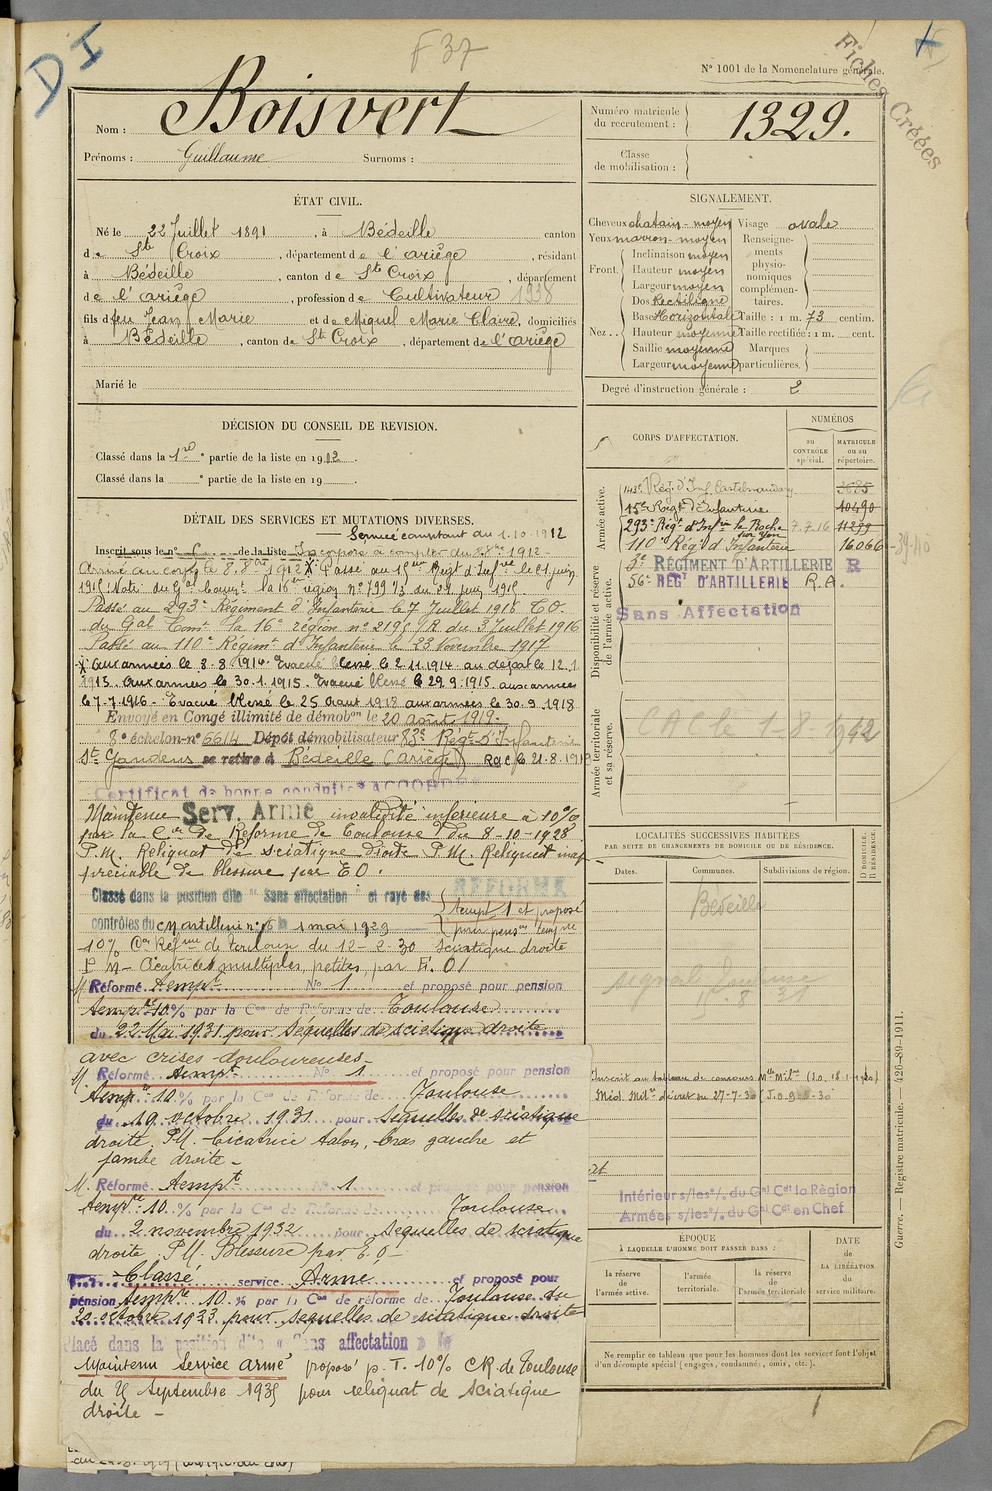 DI
F 37
N° 1001 de la Nomenclature générale.
Fiches Créées
Nom : Boisvert
Prénoms : Guillaume Surnoms :
Numéro matricule du recrutement : 1329.
Classe de mobilisation :
ÉTAT CIVIL.
Né le 22 Juillet 1891, à Bédeille canton
de Ste Croix, département de l'ariège, résidant
à Bédeille, canton de Ste Croix, département
de l'ariège, profession de Cultivateur 1938
fils de feu Jean Marie et de Miquel Marie Claire, domiciliés
à Bédeille, canton de Ste Croix, département de l'ariège
Marié le
SIGNALEMENT.
Cheveux chatain - moyen
Yeux marron - moyen
Front. Inclinaison moyen
Hauteur moyen
Largeur moyen
Nez. Dos Rectiligne
Base Horizontale
Hauteur moyenne
Saillie moyenne
Largeur moyenne
Visage ovale
Renseignements physionomiques complémentaires.
Taille : 1 m. 73 centim.
Taille rectifiée : 1 m. cent.
Marques particulières.
Degré d'instruction générale : 2
DÉCISION DU CONSEIL DE REVISION.
Classé dans la 1re partie de la liste en 1912.
Classé dans la partie de la liste en 19
DÉTAIL DES SERVICES ET MUTATIONS DIVERSES.
Service comptant du 1.10.1912
Inscrit sous le n° de la liste Incorporé à compter du 8 8bre 1912 -
Arrivé au corps le 8.8bre 1912 X Passé au 15eme Régt d'Infrie le 21 juin
1915
Passé au 293e Régiment d'Infanterie le 7 Juillet 1916 C.O.
du Gal Comt la 16e région n° 2195/R du 3 Juillet 1916
Passé au 110e Régimt d'Infanterie le 23 Novembre 1917
X aux armées le 8-8 1914. Evacué blessé le 2.11.1914 au dépot le 12.1
1915. aux armées le 30.1.1915. Evacué blessé le 29.9.1915. aux armées
le 7.7.1916 - Evacué blessé le 25 Aout 1918 aux armées le 30.9.1918
Envoyé en Congé illimité de démobon le 20 août 1919.
8e échelon n° 6614 Dépôt démobilisateur 83e Régt d'Infanterie
St Gaudens se retire à Bédeille (Ariège) Rac le 21.8.1919
Certificat de bonne conduite "ACCORDÉ"
Maintenu Serv. Armé invalidité inférieure à 10%
par la Con de Réforme de Toulouse du 8-10-1928
P.M. Reliquat de sciatique droite P.M. Reliquat inap
préciable de blessure par E.O.
Classé dans la position dite " Sans affectation et rayé des
contrôles du CM artillerie n° 16 le 1 mai 1929
RÉFORMÉ
tempre 1 et proposé
pour pension tempre
10% Con Réfme de toulouse du 12-2-30 sciatique droite
P M - Cicatrices multiples, petites, par E. O1
M. Réformé tempre N° 1 et proposé pour pension
tempre 10% par la Con de Réforme de Toulouse
du 22 Mai 1931 pour Séquelles de sciatique droite
avec crises douloureuses -
M. Réformé tempre N° 1 et proposé pour pension
tempre 10 % par la Con de Réforme de Toulouse
du 19 octobre 1931 pour séquelles de sciatique
droite. PM. Cicatrice talon, bras gauche et
jambe droite -
M. Réformé tempt N° 1 et proposé pour pension
tempre 10 % par la Con de Réforme de Toulouse
du 2 novembre 1932 pour séquelles de sciatique
droite P.M. Blessure par E.O.
Classé service Armé et proposé pour
pension tempre 10 % par la Con de réforme de Toulouse du
20 octobre 1933 pour séquelles de sciatique droite
Placé dans la position dite « Sans affectation »
Maintenu Service armé proposé p. T. 10% CR de Toulouse
du 25 Septembre 1935 pour reliquat de sciatique
droite -
CORPS D'AFFECTATION.
NUMÉROS
au CONTRÔLE spécial.
MATRICULE ou au répertoire.
Armée active.
143e Rég. d'Inf. Castelnaudary 3685
15e Régt d'Infanterie 10490
293e Régt d'Infie la Roche sur yon 7.7.16 11299
110e Régt d'Infanterie 16.066
3e RÉGIMENT D'ARTILLERIE R
56e RÉGt D'ARTILLERIE R.A.
Sans Affectation
39-40
Disponibilité et réserve de l'armée active.
Armée territoriale et sa réserve.
CAC le 1-8-1942
LOCALITÉS SUCCESSIVES HABITÉES
PAR SUITE DE CHANGEMENTS DE DOMICILE OU DE RÉSIDENCE.
Dates. Communes. Subdivisions de région. D DOMICILE. R RÉSIDENCE.
Bédeille
signal Toulouse
15 . 8 31
Inscrit au tableau de concours Mlle Milre
Méd. Milre décret du 27-7-30
Intérieur s/les % du Gal Cdt la Région
Armées s/les % du Gal Cdt en Chef
ÉPOQUE
À LAQUELLE L'HOMME DOIT PASSER DANS :
la réserve de l'armée active.
l'armée territoriale.
la réserve de l'armée territoriale
DATE de LA LIBÉRATION du service militaire.
Ne remplir ce tableau que pour les hommes dont les services font l'objet
d'un décompte spécial (engagés, condamnés, omis, etc.).
Guerre. — Registre matricule. — 426-89-1911.